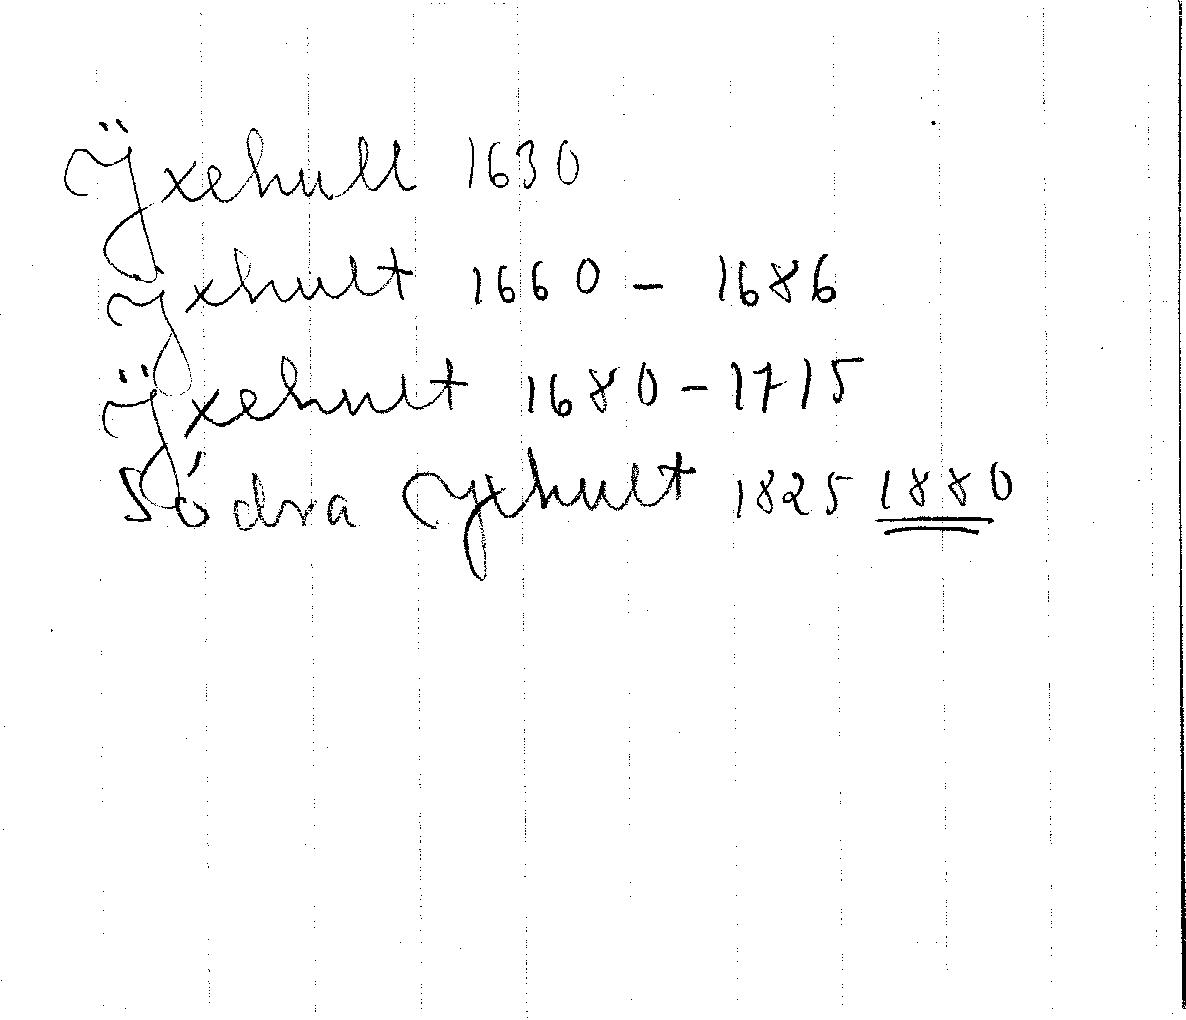 Ÿxehult 1630
Yxhult 1660 - 1686
Ÿxehult 1680-1715
Södra Yxhult 1825 1880